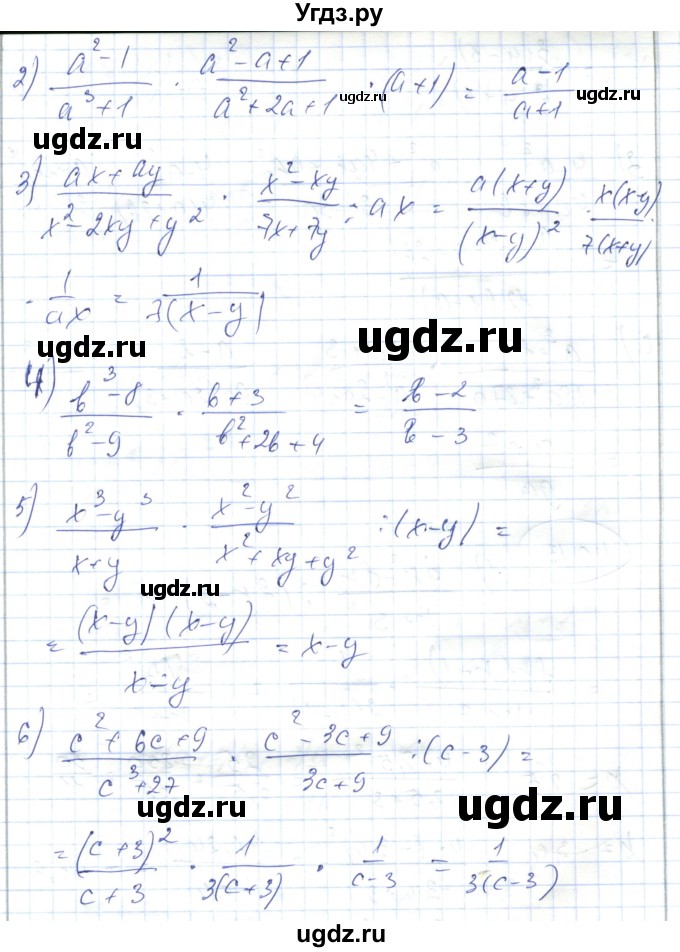 Угдз.ру
2) (a² - 1)/(a³ + 1) · (a² - a + 1)/(a² + 2a + 1) : (a + 1) = (a - 1)/(a + 1)
ugdz.ru ugdz.ru
ugdz.ru ugdz.ru
3) (ax + ay)/(x² - 2xy + y²) · (x² - xy)/(7x + 7y) : ax = a(x + y)/(x - y)² · x(x - y)/7(x + y)
· 1/(ax) = 1/7(x - y)
ugdz.ru ugdz.ru
4) (b³ - 8)/(b² - 9) · (b + 3)/(b² + 2b + 4) = (b - 2)/(b - 3)
5) (x³ - y³)/(x + y) · (x² - y²)/(x² + xy + y²) : (x - y) =
ugdz.ru ugdz.ru
= (x - y)(x - y)/(x - y) = x - y
ugdz.ru
6) (c² + 6c + 9)/(c³ + 27) · (c² - 3c + 9)/(3c + 9) : (c - 3) =
ugdz.ru ugdz.ru
= (c + 3)²/(c + 3) · 1/3(c + 3) · 1/(c - 3) = 1/3(c - 3)
ugdz.ru ugdz.ru